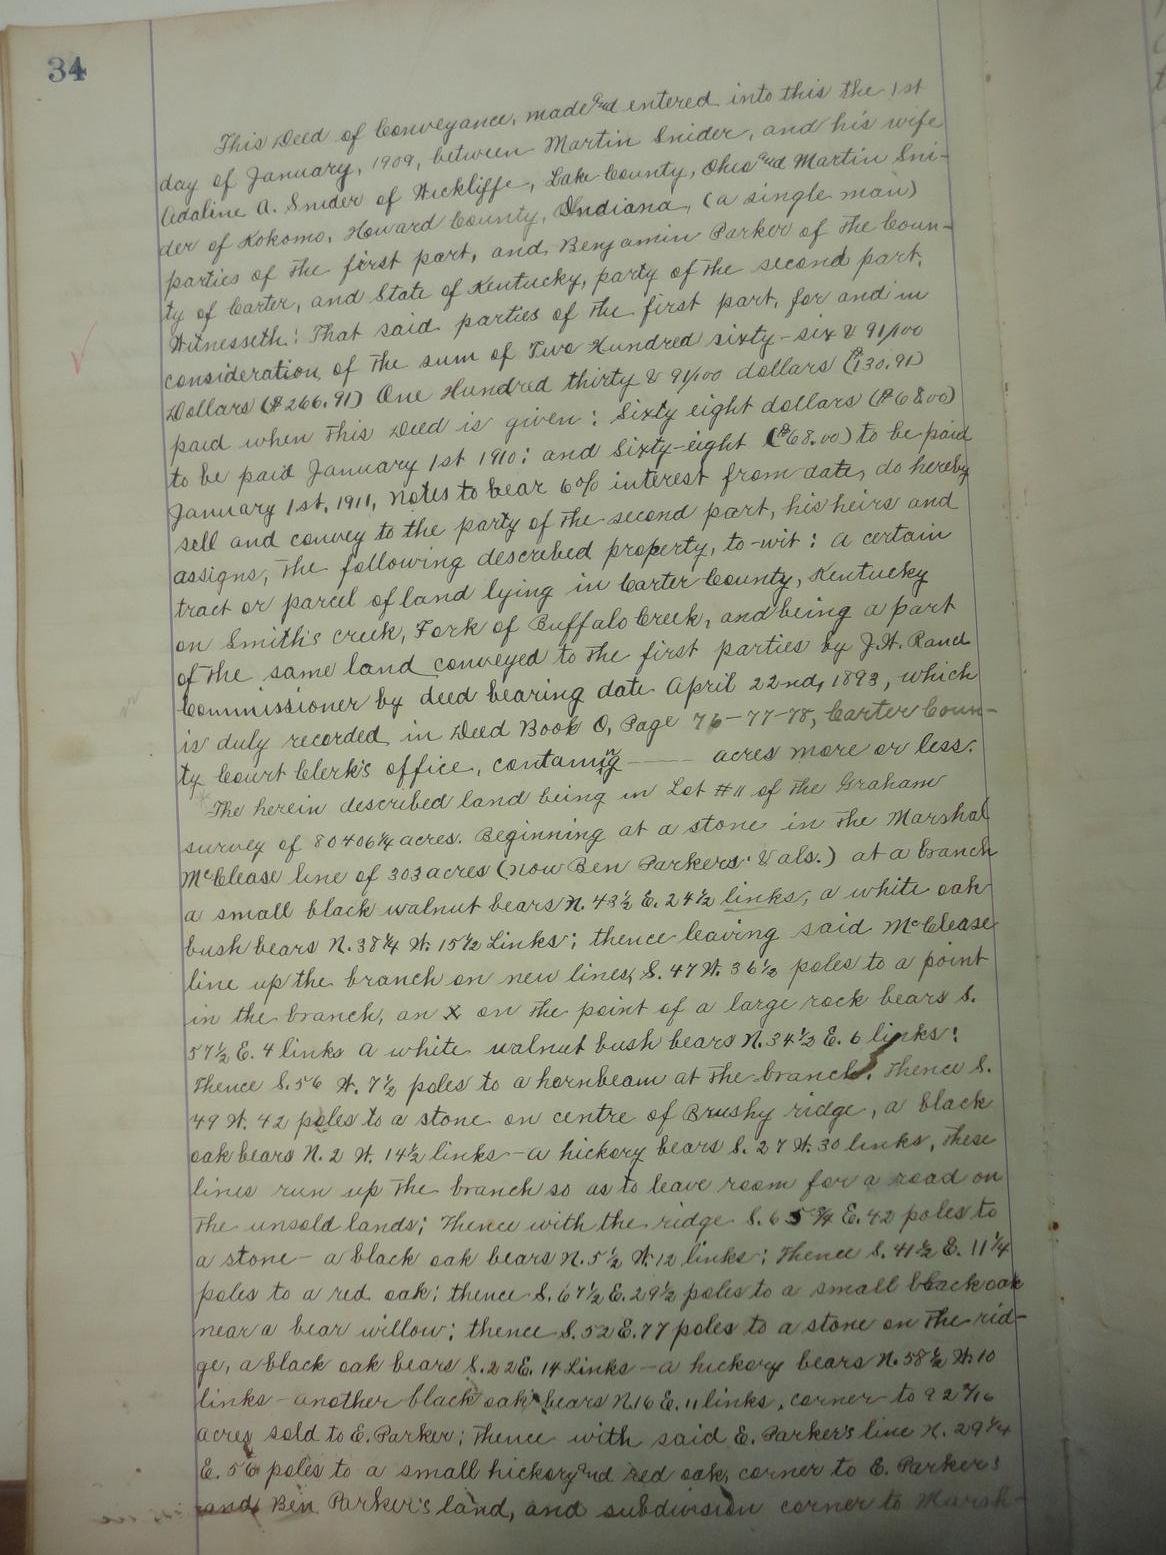 34
This Deed of Conveyance, made and entered into this the 1st
day of January, 1909, between Martin Snider, and his wife
Adaline A. Snider of Wickliffe, Lake County, Ohio and Martin Sni-
der of Kokomo, Howard County, Indiana, (a single man)
parties of the first part, and, Benjamin Parker of the Coun-
ty of Carter, and State of Kentucky, party of the second part,
Witnesseth: That said parties of the first part, for and in
consideration of the sum of Two Hundred sixty-six & 91/100
Dollars ($266.91) One Hundred thirty & 91/100 dollars ($130.91)
paid when this Deed is given: Sixty eight dollars ($68.00)
to be paid January 1st 1910: and Sixty-eight ($68.00) to be paid
January 1st, 1911, notes to bear 6% interest from date, do hereby
sell and convey to the party of the second part, his heirs and
assigns, the following described property, to-wit: A certain
tract or parcel of land lying in Carter County, Kentucky
on Smith's creek, Fork of Buffalo Creek, and being a part
of the same land conveyed to the first parties by J.H. Rand
Commissioner by deed bearing date April 22nd, 1893, which
is duly recorded in Deed Book O, Page 76-77-78, Carter Coun-
ty Court Clerk's office, containing —— acres more or less.
The herein described land being in Lot #11 of the Graham
survey of 80406¼ acres. Beginning at a stone in the Marshal
McClease line of 303 acres (now Ben Parkers & als.) at a branch
a small black walnut bears N. 43½ E. 24½ links, a white oak
bush bears N. 38¼ W. 15½ Links; thence leaving said McClease
line up the branch on new lines, S. 47 W. 36½ poles to a point
in the branch, an X on the point of a large rock bears S.
57½ E. 4 links a white walnut bush bears N. 34½ E. 6 links:
Thence S. 56 W. 7½ poles to a hornbeam at the branch. Thence S.
49 W. 42 poles to a stone on centre of Brushy ridge, a black
oak bears N. 2 W. 14½ links - a hickory bears S. 27 W. 30 links, These
lines run up the branch so as to leave room for a road on
the unsold lands; Thence with the ridge S. 65¾ E. 42 poles to
a stone - a black oak bears N. 5½ W. 12 links; Thence S. 41½ E. 11¼
poles to a red oak; thence S. 67½ E. 29½ poles to a small black oak
near a bear willow; thence S. 52 E. 77 poles to a stone on the rid-
ge, a black oak bears S. 22 E. 14 Links - a hickory bears N. 58½ W. 10
links - another black oak bears N. 16 E. 11 links, corner to
acres sold to E. Parker; Thence with said E. Parker's line N. 29¼
E. 56 poles to a small hickory and red oak, corner to E. Parkers
and Ben Parker's land, and subdivision corner to Marsh-